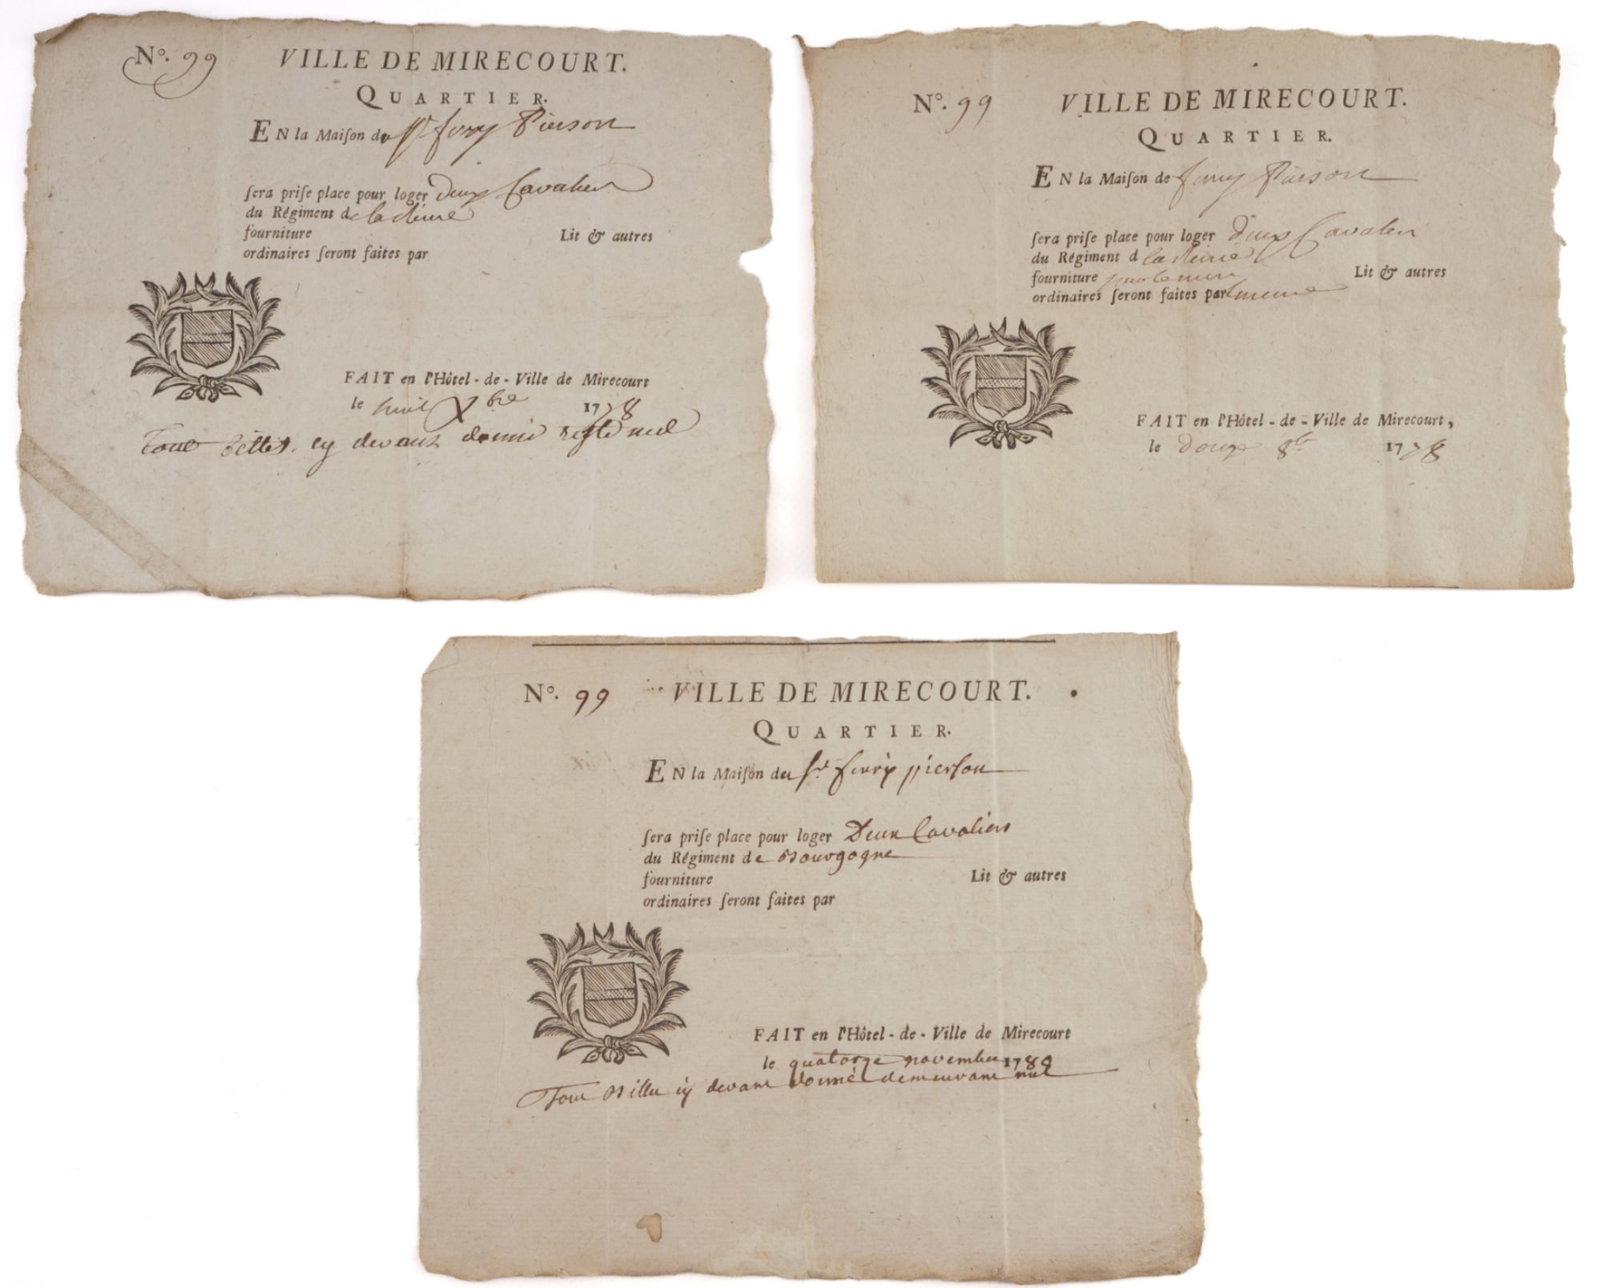 No. 99 VILLE DE MIRECOURT.
QUARTIER.
EN la Maiſon du Sr fury Pierson
ſera priſe place pour loger deux Cavaliers
du Régiment de la Reine
fourniture Lit & autres
ordinaires ſeront faites par
FAIT en l'Hôtel-de-Ville de Mirecourt
le huit Xbre 1778
Tous billets cy devant donné reste nul
No. 99 VILLE DE MIRECOURT.
QUARTIER.
EN la Maiſon de fury Pierson
ſera priſe place pour loger deux Cavaliers
du Régiment d la Reine
fourniture Lit & autres
ordinaires ſeront faites par
FAIT en l'Hôtel-de-Ville de Mirecourt,
le douze 8bre 1778
No. 99 VILLE DE MIRECOURT.
QUARTIER.
EN la Maiſon du Sr fury pierson
ſera priſe place pour loger Deux Cavaliers
du Régiment de Bourgogne
fourniture Lit & autres
ordinaires ſeront faites par
FAIT en l'Hôtel-de-Ville de Mirecourt
le quatorze novembre 1789
Tous Billes cy devant donné demeurant nul